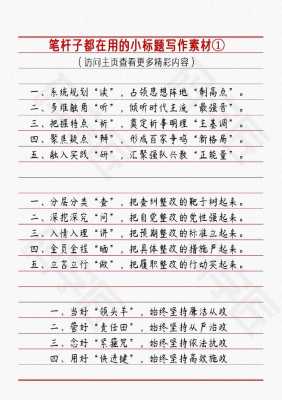 笔杆子都在用的小标题写作素材①
(访问主页查看更多精彩内容)
一、系统规划“读”，占领思想阵地“制高点”。
二、多维触角“听”，倾听时代主流“最强音”。
三、把握特点“析”，奠定析事明理“主基调”。
四、聚焦疑点“辩”，形成百家争鸣“新格局”。
五、融入实践“研”，汇聚强队兴教“正能量”。
一、分层分类“查”，把查纠整改的靶子树起来。
二、深挖深究“问”，把自觉整改的党性强起来。
三、入情入理“讲”，把预期整改的标准立起来。
四、全员全程“晒”，把具体整改的措施严起来。
五、立言立行“做”，把履职整改的行动实起来。
一、当好“领头羊”，始终坚持廉洁从政
二、管好“责任田”，始终坚持从严治政
三、念好“紧箍咒”，始终坚持依法执政
四、用好“快进键”，始终坚持高效施政